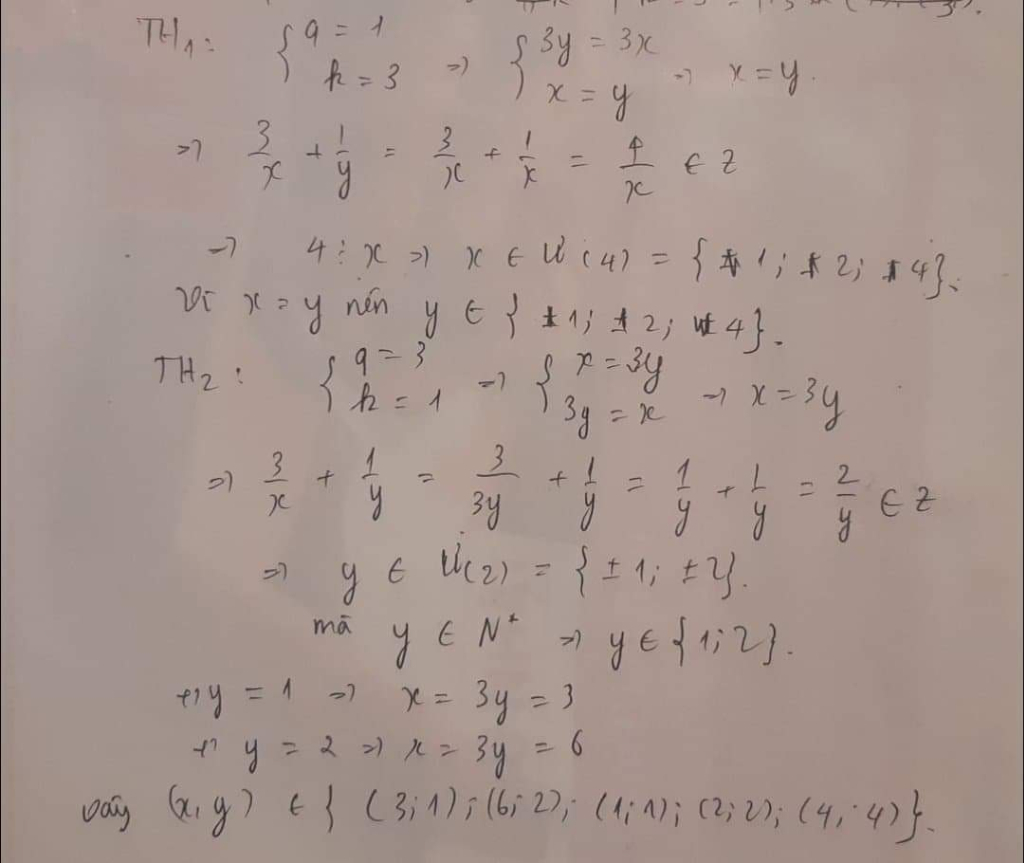 TH₁: { q = 1 k = 3 => { 3y = 3x x = y → x = y.
=> 3/x + 1/y = 3/x + 1/x = 4/x ∈ Z
→ 4 ⋮ x => x ∈ Ư(4) = { 1; 2; 4}.
Vì x = y nên y ∈ { 1; 2; 4}.
TH₂: { q = 3 k = 1 → { x = 3y 3y = x → x = 3y
=> 3/x + 1/y = 3/3y + 1/y = 1/y + 1/y = 2/y ∈ Z
=> y ∈ Ư(2) = { ± 1; ± 2}.
mà y ∈ N* => y ∈ {1; 2}.
+) y = 1 => x = 3y = 3
+) y = 2 => x = 3y = 6
vậy (x, y) ∈ { (3; 1); (6; 2); (1; 1); (2; 2); (4; 4)}.